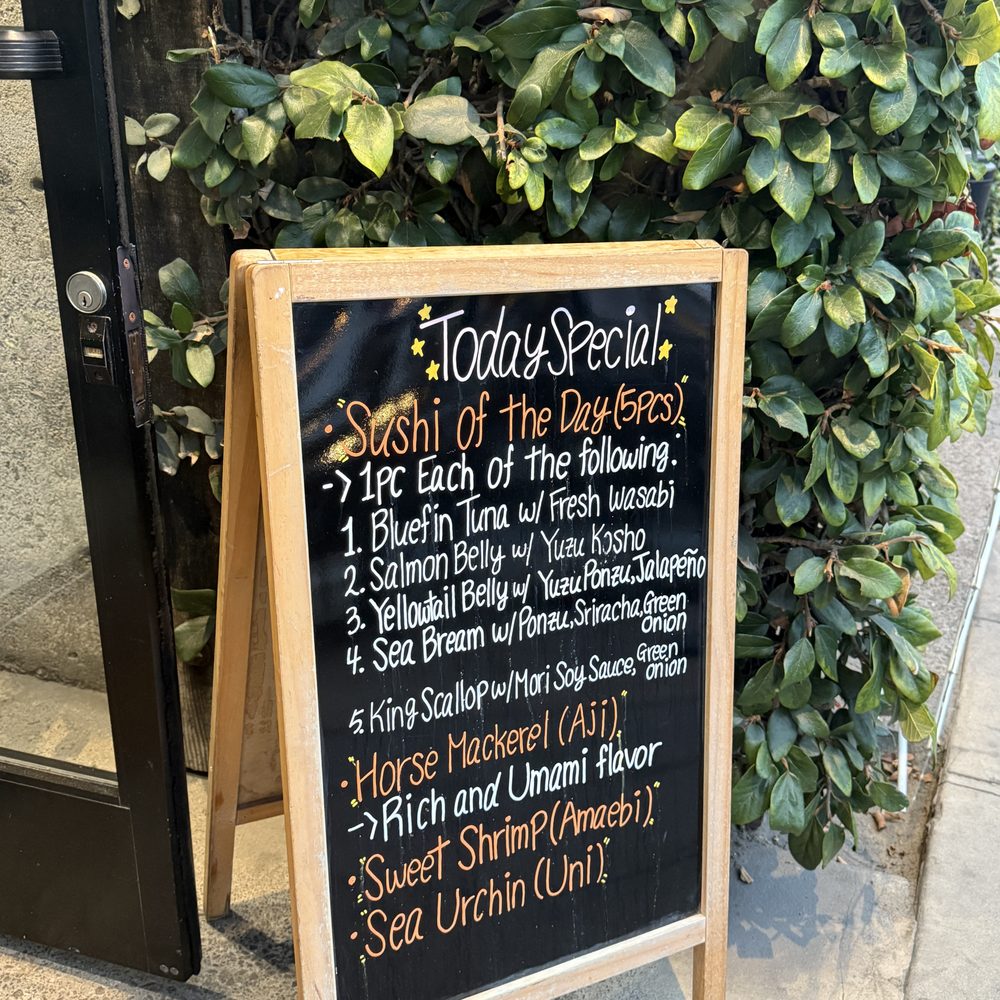 Today Special
• Sushi of the Day (5pcs)
-> 1pc Each of the following:
1. Bluefin Tuna w/ Fresh Wasabi
2. Salmon Belly w/ Yuzu Kosho
3. Yellowtail Belly w/ Yuzu Ponzu, Jalapeño
4. Sea Bream w/ Ponzu, Sriracha, Green onion
5. King Scallop w/ Mori Soy Sauce, Green onion
• Horse Mackerel (Aji)
-> Rich and Umami flavor
• Sweet Shrimp (Amaebi)
• Sea Urchin (Uni)